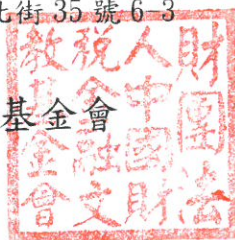 街 35 號 6-3
基金會
財團法
人中國財
稅金融文
教基金會